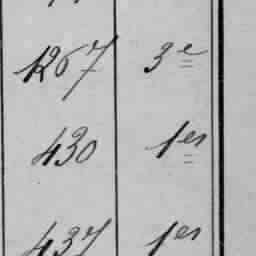 1267 3e
430 1er
437 1er